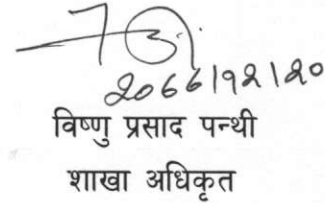 २०६६।१२।२०
विष्णु प्रसाद पन्थी
शाखा अधिकृत